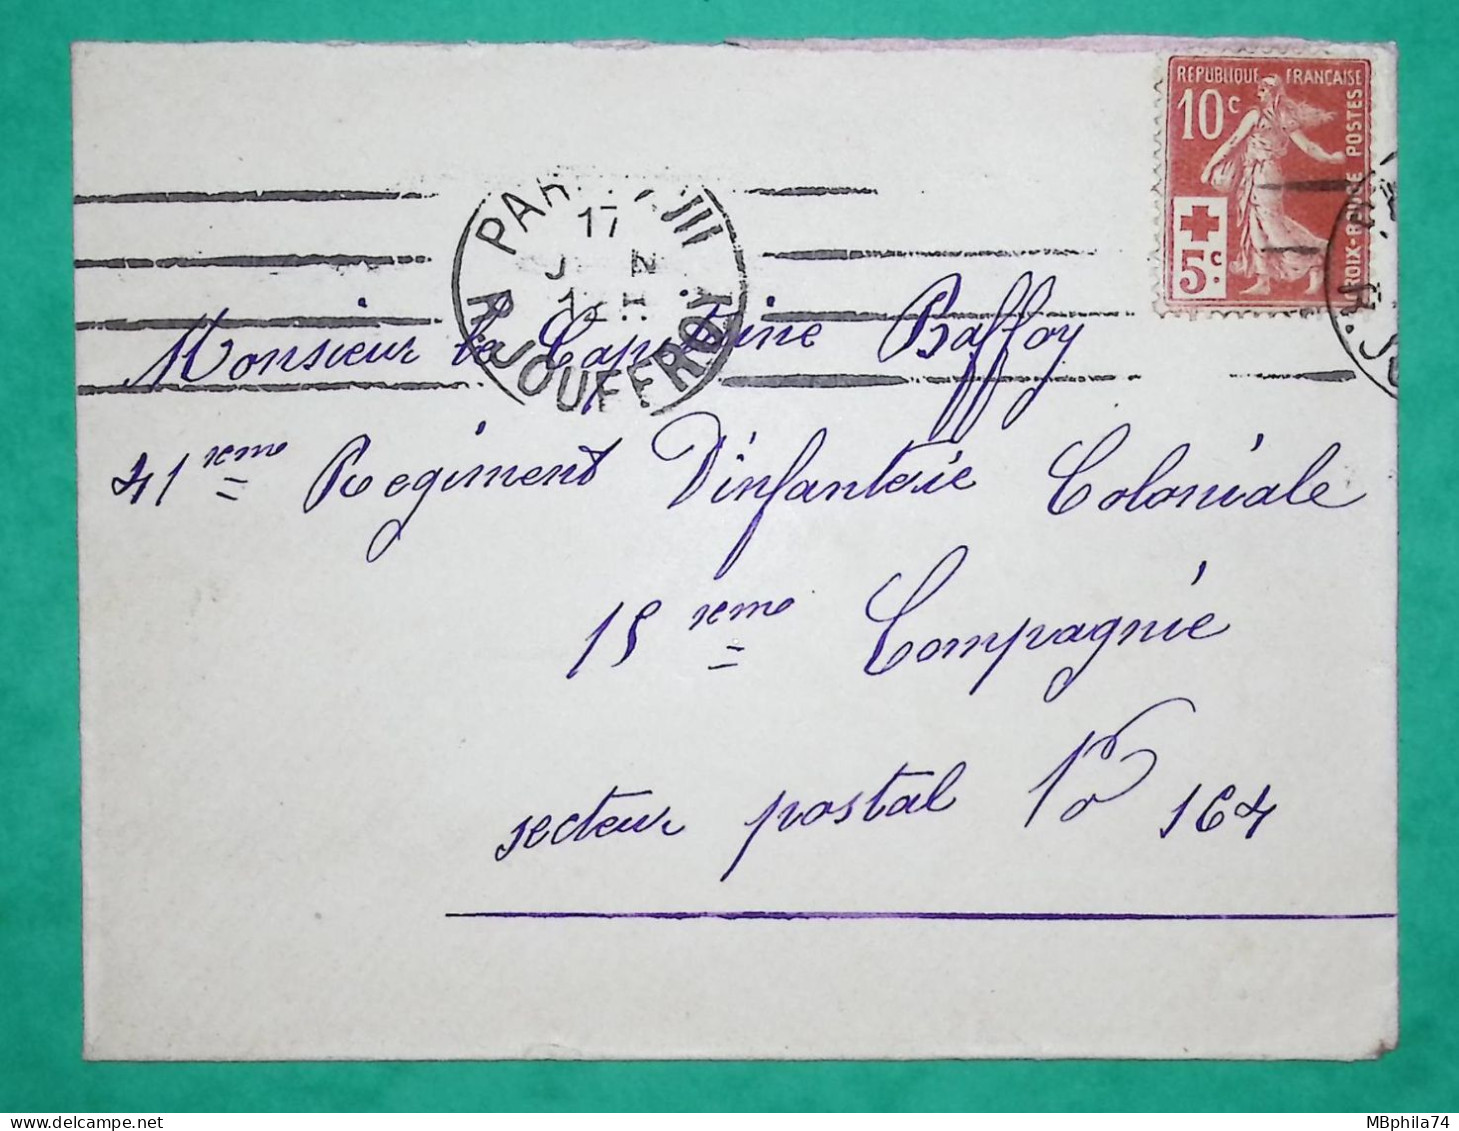 REPUBLIQUE FRANÇAISE
10c
POSTES
CROIX-ROUGE
5c
PARIS XVIII
17
R. JOUFFROY
Monsieur le Capitaine Baffoy
41ieme Regiment D'infanterie Coloniale
15ieme Compagnie
secteur postal No 164
MBphila74